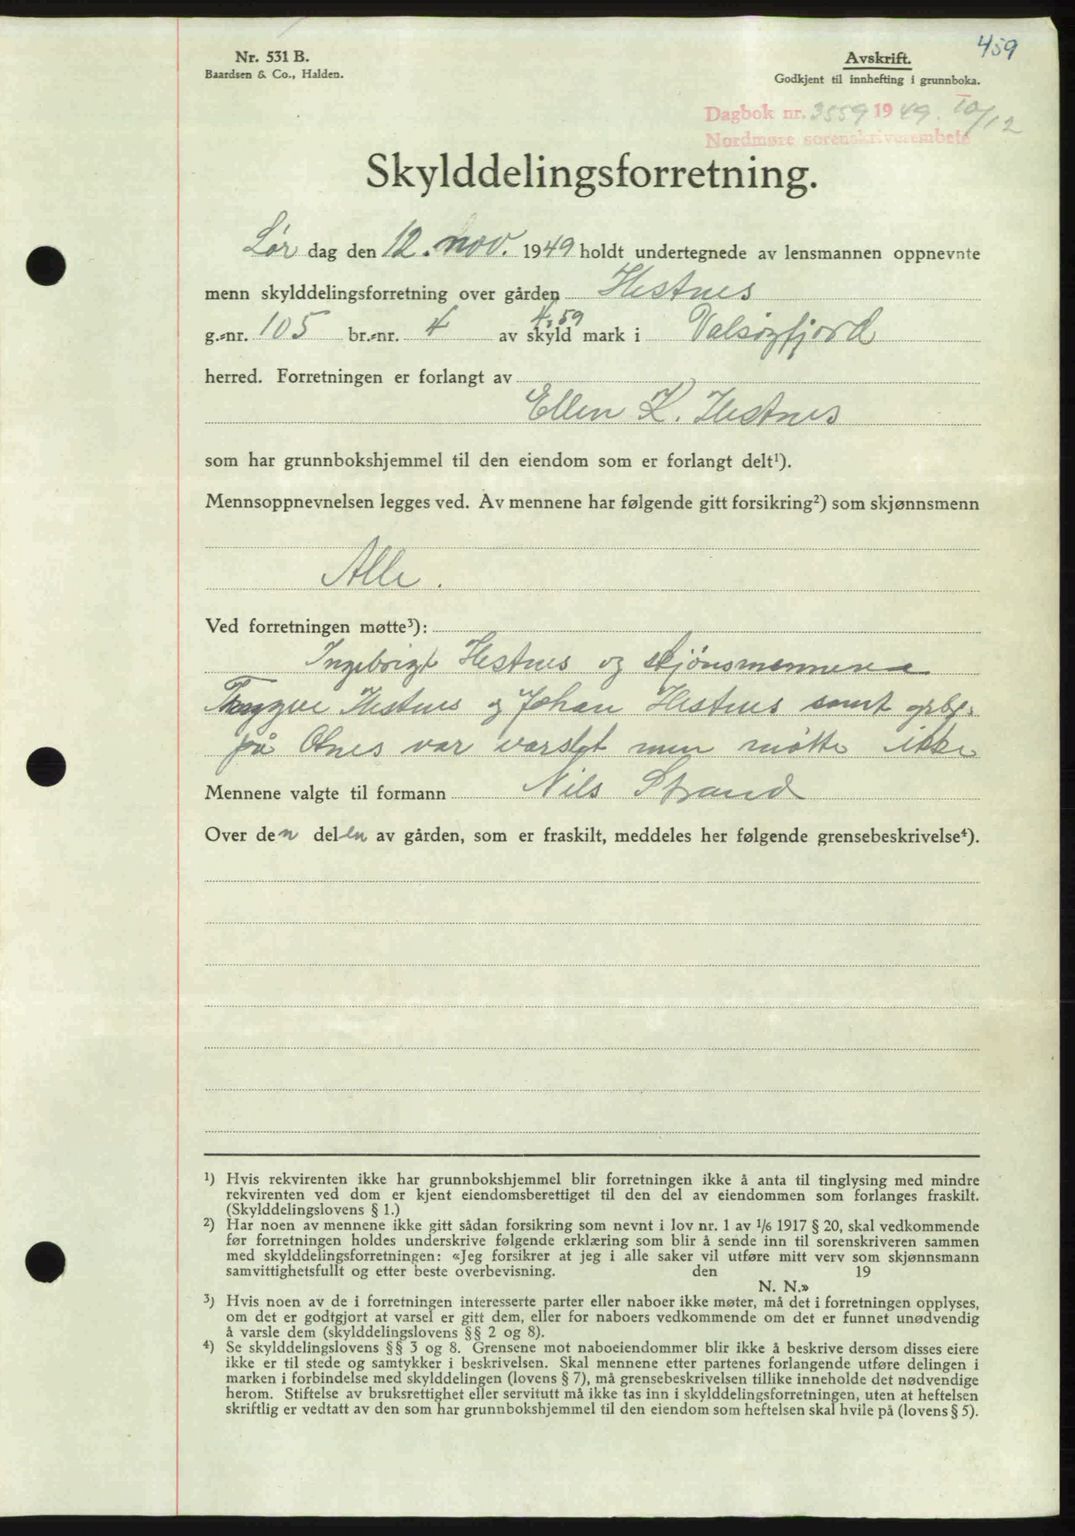 459
Nr. 531 B.
Baardsen & Co., Halden.
Avskrift.
Godkjent til innhefting i grunnboka.
Dagbok nr. 3559 1949. 10/12
Nordmøre sorenskriverembete
Skylddelingsforretning.
Lør dag den 12. nov. 1949 holdt undertegnede av lensmannen oppnevnte
menn skylddelingsforretning over gården Hestnes
4,59
g.-nr. 105 br.-nr. 4 av skyld mark i Valsøyfjord
herred. Forretningen er forlangt av
Ellen K. Hestnes
som har grunnbokshjemmel til den eiendom som er forlangt delt¹).
Mennsoppnevnelsen legges ved. Av mennene har følgende gitt forsikring²) som skjønnsmenn
Alle.
Ved forretningen møtte³):
Ingebrigt Hestnes og skjønsmennene
Tryggve Hestnes og Johan Hestnes samt
på Otnes var varslet men møtte ikke
Mennene valgte til formann Nils Strand
Over den delen av gården, som er fraskilt, meddeles her følgende grensebeskrivelse⁴).
¹) Hvis rekvirenten ikke har grunnbokshjemmel blir forretningen ikke å anta til tinglysing med mindre
rekvirenten ved dom er kjent eiendomsberettiget til den del av eiendommen som forlanges fraskilt.
(Skylddelingslovens § 1.)
²) Har noen av mennene ikke gitt sådan forsikring som nevnt i lov nr. 1 av 1/6 1917 § 20, skal vedkommende
før forretningen holdes underskrive følgende erklæring som blir å sende inn til sorenskriveren sammen
med skylddelingsforretningen: «Jeg forsikrer at jeg i alle saker vil utføre mitt verv som skjønnsmann
samvittighetsfullt og etter beste overbevisning. den 19
N. N.»
³) Hvis noen av de i forretningen interesserte parter eller naboer ikke møter, må det i forretningen opplyses,
om det er godtgjort at varsel er gitt dem, eller for naboers vedkommende om det er funnet unødvendig
å varsle dem (skylddelingslovens §§ 2 og 8).
⁴) Se skylddelingslovens §§ 3 og 8. Grensene mot naboeiendommer blir ikke å beskrive dersom disses eiere
ikke er til stede og samtykker i beskrivelsen. Skal mennene etter partenes forlangende utføre delingen i
marken i forbindelse med skylddelingen (lovens § 7), må grensebeskrivelsen tillike inneholde det nødvendige
herom. Stiftelse av bruksrettighet eller servitutt må ikke tas inn i skylddelingsforretningen, uten at heftelsen
skriftlig er vedtatt av den som har grunnbokshjemmel til den eiendom som heftelsen skal hvile på (lovens § 5).